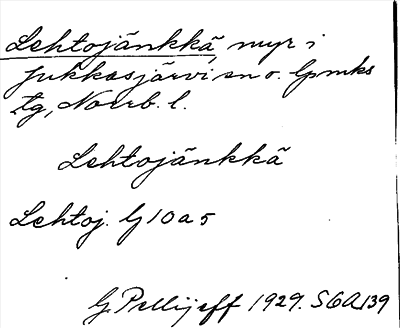 Lehtojänkkä, myr i
Jukkasjärvi sn o. lpmks
tg, Norrb. l.
Lehtojänkkä
Lehtoj. G 10 a 5
G. Pellijeff 1929. SGA 139